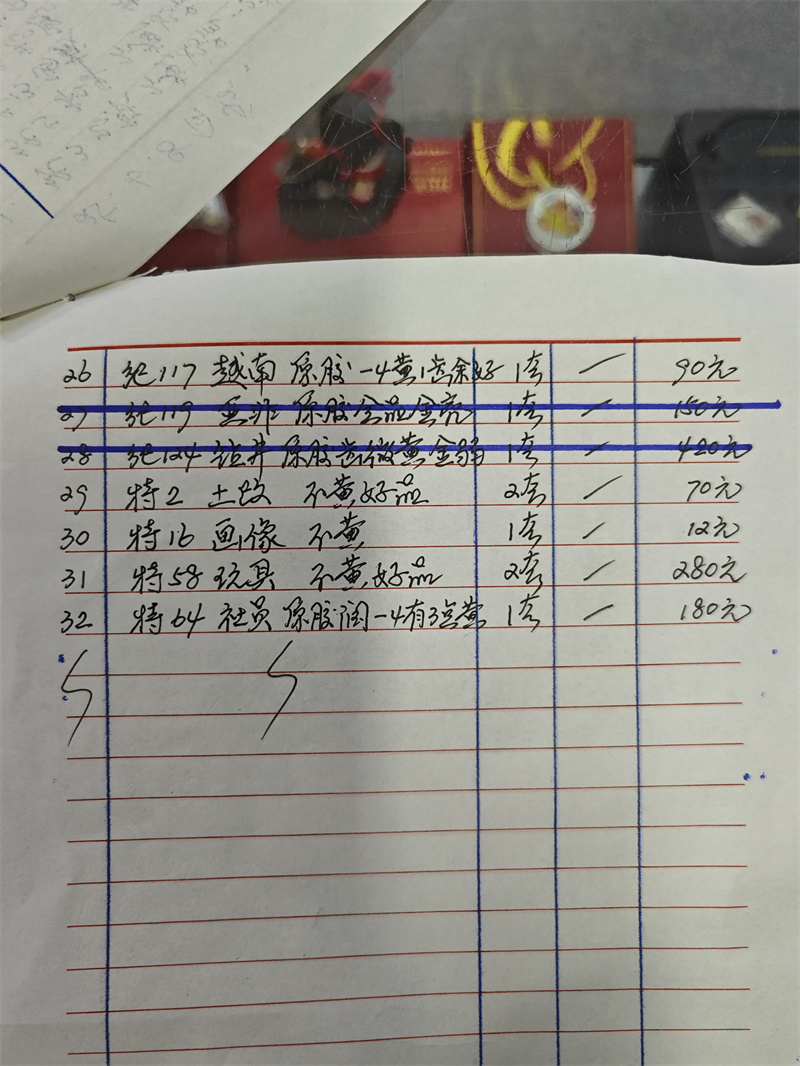 26 纪117 越南 原胶一4黄1齿余好 1套 / 90元
27 纪119 亚非 原胶全品全亮 1套 / 150元
28 纪124 钻井 原胶齿微黄全 1套 / 420元
29 特2 土改 不黄好品 2套 / 70元
30 特16 画像 不黄 1套 / 12元
31 特58 玩具 不黄好品 2套 / 280元
32 特64 社员 原胶润一4有3点黄 1套 / 180元